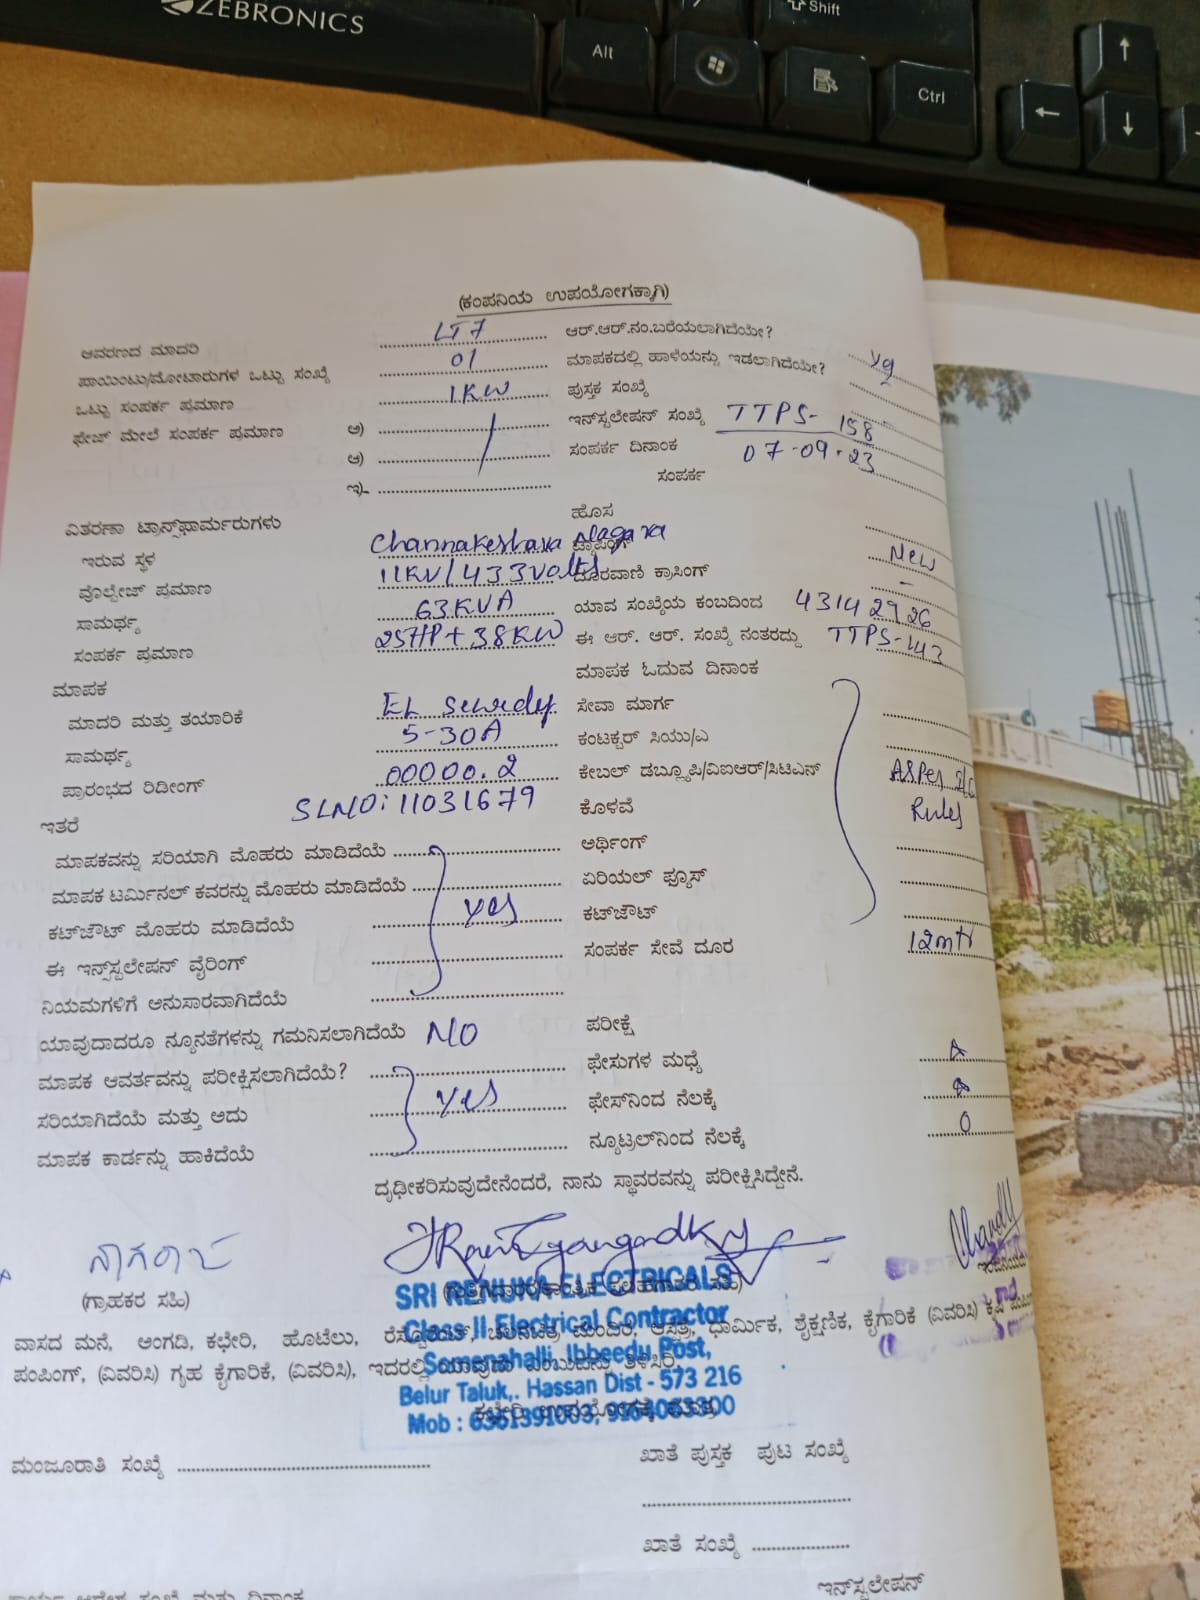 ZEBRONICS
Shift
Alt
Ctrl
(ಕಂಪನಿಯ ಉಪಯೋಗಕ್ಕಾಗಿ)
ಆವರಣದ ಮಾದರಿ LT7 ಆರ್.ಆರ್.ನಂ.ಬರೆಯಲಾಗಿದೆಯೇ?
ಪಾಯಿಂಟು/ಮೋಟಾರುಗಳ ಒಟ್ಟು ಸಂಖ್ಯೆ 01 ಮಾಪಕದಲ್ಲಿ ಹಾಳೆಯನ್ನು ಇಡಲಾಗಿದೆಯೇ?
ಒಟ್ಟು ಸಂಪರ್ಕ ಪ್ರಮಾಣ 1KW ಪುಸ್ತಕ ಸಂಖ್ಯೆ
ಫೇಜ್ ಮೇಲೆ ಸಂಪರ್ಕ ಪ್ರಮಾಣ ಅ) ಇನ್‌ಸ್ಟಲೇಷನ್ ಸಂಖ್ಯೆ TTPS-158
ಆ) ಸಂಪರ್ಕ ದಿನಾಂಕ 07-09-23
ಇ) ಸಂಪರ್ಕ
ವಿತರಣಾ ಟ್ರಾನ್ಸ್‌ಫಾರ್ಮರುಗಳು ಹೊಸ
ಇರುವ ಸ್ಥಳ Channakeshava Nagara ಟ್ಯಾಪಿಂಗ್ New
ವೊಲ್ಟೇಜ್ ಪ್ರಮಾಣ 11KV/433Volts ದೂರವಾಣಿ ಕ್ರಾಸಿಂಗ್ -
ಸಾಮರ್ಥ್ಯ 63KVA ಯಾವ ಸಂಖ್ಯೆಯ ಕಂಬದಿಂದ 43142926
ಸಂಪರ್ಕ ಪ್ರಮಾಣ 25HP+38KW ಈ ಆರ್. ಆರ್. ಸಂಖ್ಯೆ ನಂತರದ್ದು TTPS-143
ಮಾಪಕ ಮಾಪಕ ಓದುವ ದಿನಾಂಕ
ಮಾದರಿ ಮತ್ತು ತಯಾರಿಕೆ EL ಸೇವಾ ಮಾರ್ಗ
ಸಾಮರ್ಥ್ಯ 5-30A ಕಂಟಕ್ಟರ್ ಸಿಯು/ಎ
ಪ್ರಾರಂಭದ ರಿಡೀಂಗ್ 00000.2 ಕೇಬಲ್ ಡಬ್ಲ್ಯೂಪಿ/ವಿಐಆರ್/ಸಿಟಿಎನ್ ASPer
ಇತರೆ SLNO:11031679 ಕೊಳವೆ Rules
ಮಾಪಕವನ್ನು ಸರಿಯಾಗಿ ಮೊಹರು ಮಾಡಿದೆಯೆ ಅರ್ಥಿಂಗ್
ಮಾಪಕ ಟರ್ಮಿನಲ್ ಕವರನ್ನು ಮೊಹರು ಮಾಡಿದೆಯೆ ಏರಿಯಲ್ ಫ್ಯೂಸ್
ಕಟ್‌ಔಟ್ ಮೊಹರು ಮಾಡಿದೆಯೆ yes ಕಟ್‌ಔಟ್
ಈ ಇನ್‌ಸ್ಟಲೇಷನ್ ವೈರಿಂಗ್ ಸಂಪರ್ಕ ಸೇವೆ ದೂರ 12mtr
ನಿಯಮಗಳಿಗೆ ಅನುಸಾರವಾಗಿದೆಯೆ
ಯಾವುದಾದರೂ ನ್ಯೂನತೆಗಳನ್ನು ಗಮನಿಸಲಾಗಿದೆಯೆ NO ಪರೀಕ್ಷೆ
ಮಾಪಕ ಆವರ್ತವನ್ನು ಪರೀಕ್ಷಿಸಲಾಗಿದೆಯೆ? ಫೇಸುಗಳ ಮಧ್ಯೆ
ಸರಿಯಾಗಿದೆಯೆ ಮತ್ತು ಅದು yes ಫೇಸ್‌ನಿಂದ ನೆಲಕ್ಕೆ
ಮಾಪಕ ಕಾರ್ಡನ್ನು ಹಾಕಿದೆಯೆ ನ್ಯೂಟ್ರಲ್‌ನಿಂದ ನೆಲಕ್ಕೆ 0
ದೃಢೀಕರಿಸುವುದೇನೆಂದರೆ, ನಾನು ಸ್ಥಾವರವನ್ನು ಪರೀಕ್ಷಿಸಿದ್ದೇನೆ.
ನಾಗರಾಜ
(ಗ್ರಾಹಕರ ಸಹಿ)
SRI RENUKA ELECTRICALS
Class II Electrical Contractor
Somenahalli, Ibbeedu Post,
Belur Taluk,. Hassan Dist - 573 216
Mob : 6361391003,
ವಾಸದ ಮನೆ, ಅಂಗಡಿ, ಕಛೇರಿ, ಹೊಟೆಲು, ರೆಸ್ಟೋರೆಂಟ್, ಚಲನಚಿತ್ರ ಮಂದಿರ, ಆಸ್ಪತ್ರೆ, ಧಾರ್ಮಿಕ, ಶೈಕ್ಷಣಿಕ, ಕೈಗಾರಿಕೆ (ವಿವರಿಸಿ) ಕೃಷಿ
ಪಂಪಿಂಗ್, (ವಿವರಿಸಿ) ಗೃಹ ಕೈಗಾರಿಕೆ, (ವಿವರಿಸಿ), ಇದರಲ್ಲಿ ಯಾವುದು ಎಂಬುದನ್ನು ತಿಳಿಸಿರಿ.
ಕಛೇರಿ ಉಪಯೋಗಕ್ಕೆ ಮಾತ್ರ
ಮಂಜೂರಾತಿ ಸಂಖ್ಯೆ ಖಾತೆ ಪುಸ್ತಕ ಪುಟ ಸಂಖ್ಯೆ
ಖಾತೆ ಸಂಖ್ಯೆ
ಇನ್‌ಸ್ಟಲೇಷನ್